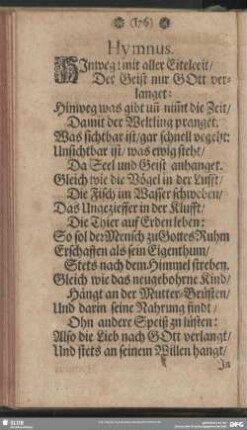 (176)
Hymnus.
HInweg! mit aller Eitelceit/
Der Geist nur GOtt ver-
langet:
Hinweg was gibt uñ nim̃t die Zeit/
Damit der Weltling pranget.
Was sichtbar ist/gar schnell vegeht:
Unsichtbar ist/ was ewig steht/
Da Seel und Geist anhanget.
Gleich wie die Vögel in der Lufft/
Die Fisch im Wasser schweben/
Das Ungezieffer in der Klufft/
Die Thier auf Erden leben:
So sol der Mensch zu Gottes Ruhm
Erschaffen als sein Eigenthum/
Stets nach dem Himmel streben.
Gleich wie das neugebohrne Kind/
Hängt an der Mutter-Brüsten/
Und darin seine Nahrung findt/
Ohn andere Speiß zu lüsten:
Also die Lieb nach GOtt verlangt/
Und stets an seinem Willen hangt/
In
SLUB